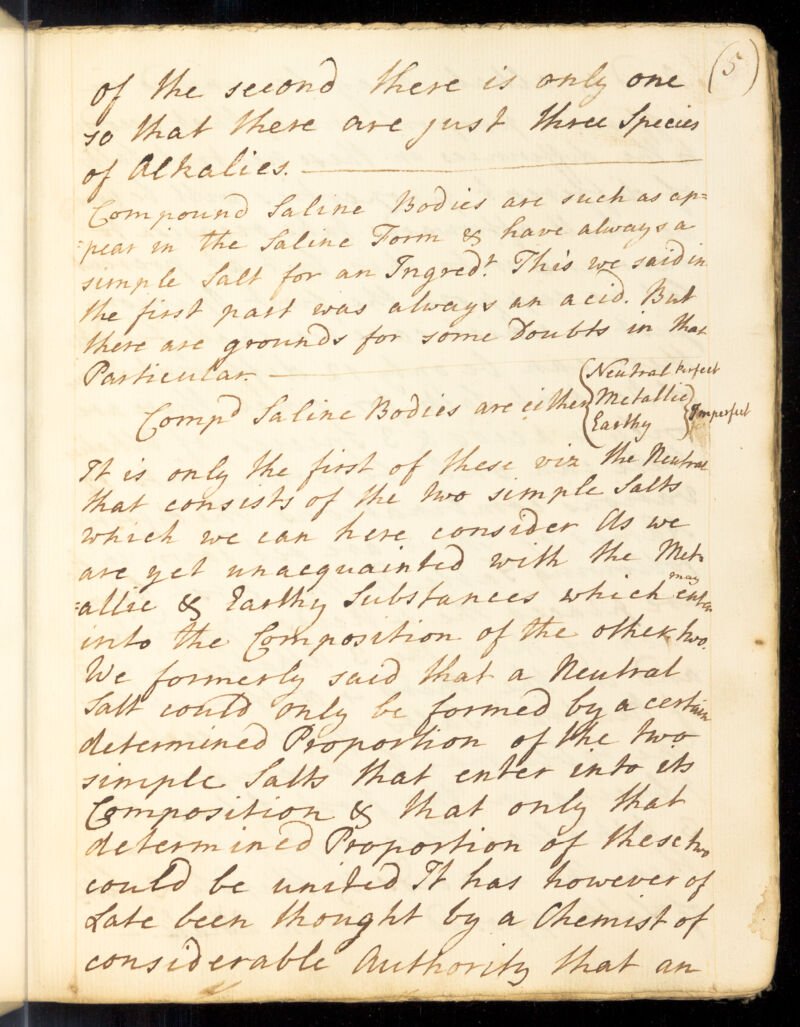 (5)
of the second there is only one
so that there are just three Species
of Alkalies.
Compound Saline Bodies are such as ap=
=pear in the Saline Form & have always a
simple Salt for an Ingredt. This we said in
the first part was always an acid. But
there are grounds for some Doubts in that
Particular.
Neutral Perfect
Compd Saline Bodies are either Metallic Imperfect
Earthy
It is only the first of these viz the Neutral
that consists of the two simple Salts
which we can here consider As we
are yet unacquainted with the Met=
=allic & Earthy Substances which may enter
into the Composition of the other two.
We formerly said that a Neutral
Salt could only be formed by a certain
determined Proportion of the two
simple Salts that enter into its
Composition & that only that
determined Proportion of these two
could be united It has however of
Late been thought by a Chemist of
considerable Authority that an